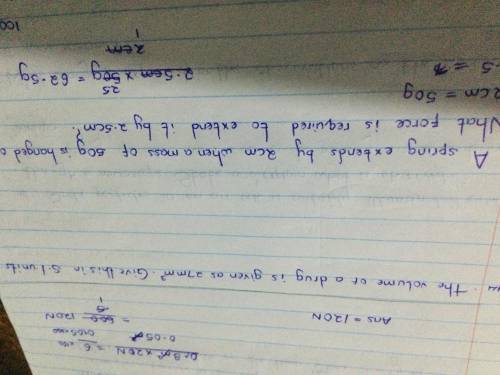 0.3m × 20N = 6
0.05m
= 600 120N
5
1
Ans = 120N
The volume of a drug is given as 27mm³. Give this in S.I units
A spring extends by 2cm when a mass of 50g is hanged
What force is required to extend it by 2.5cm.
2cm = 50g
2.5cm × 50g = 62.5g
25
2cm
1